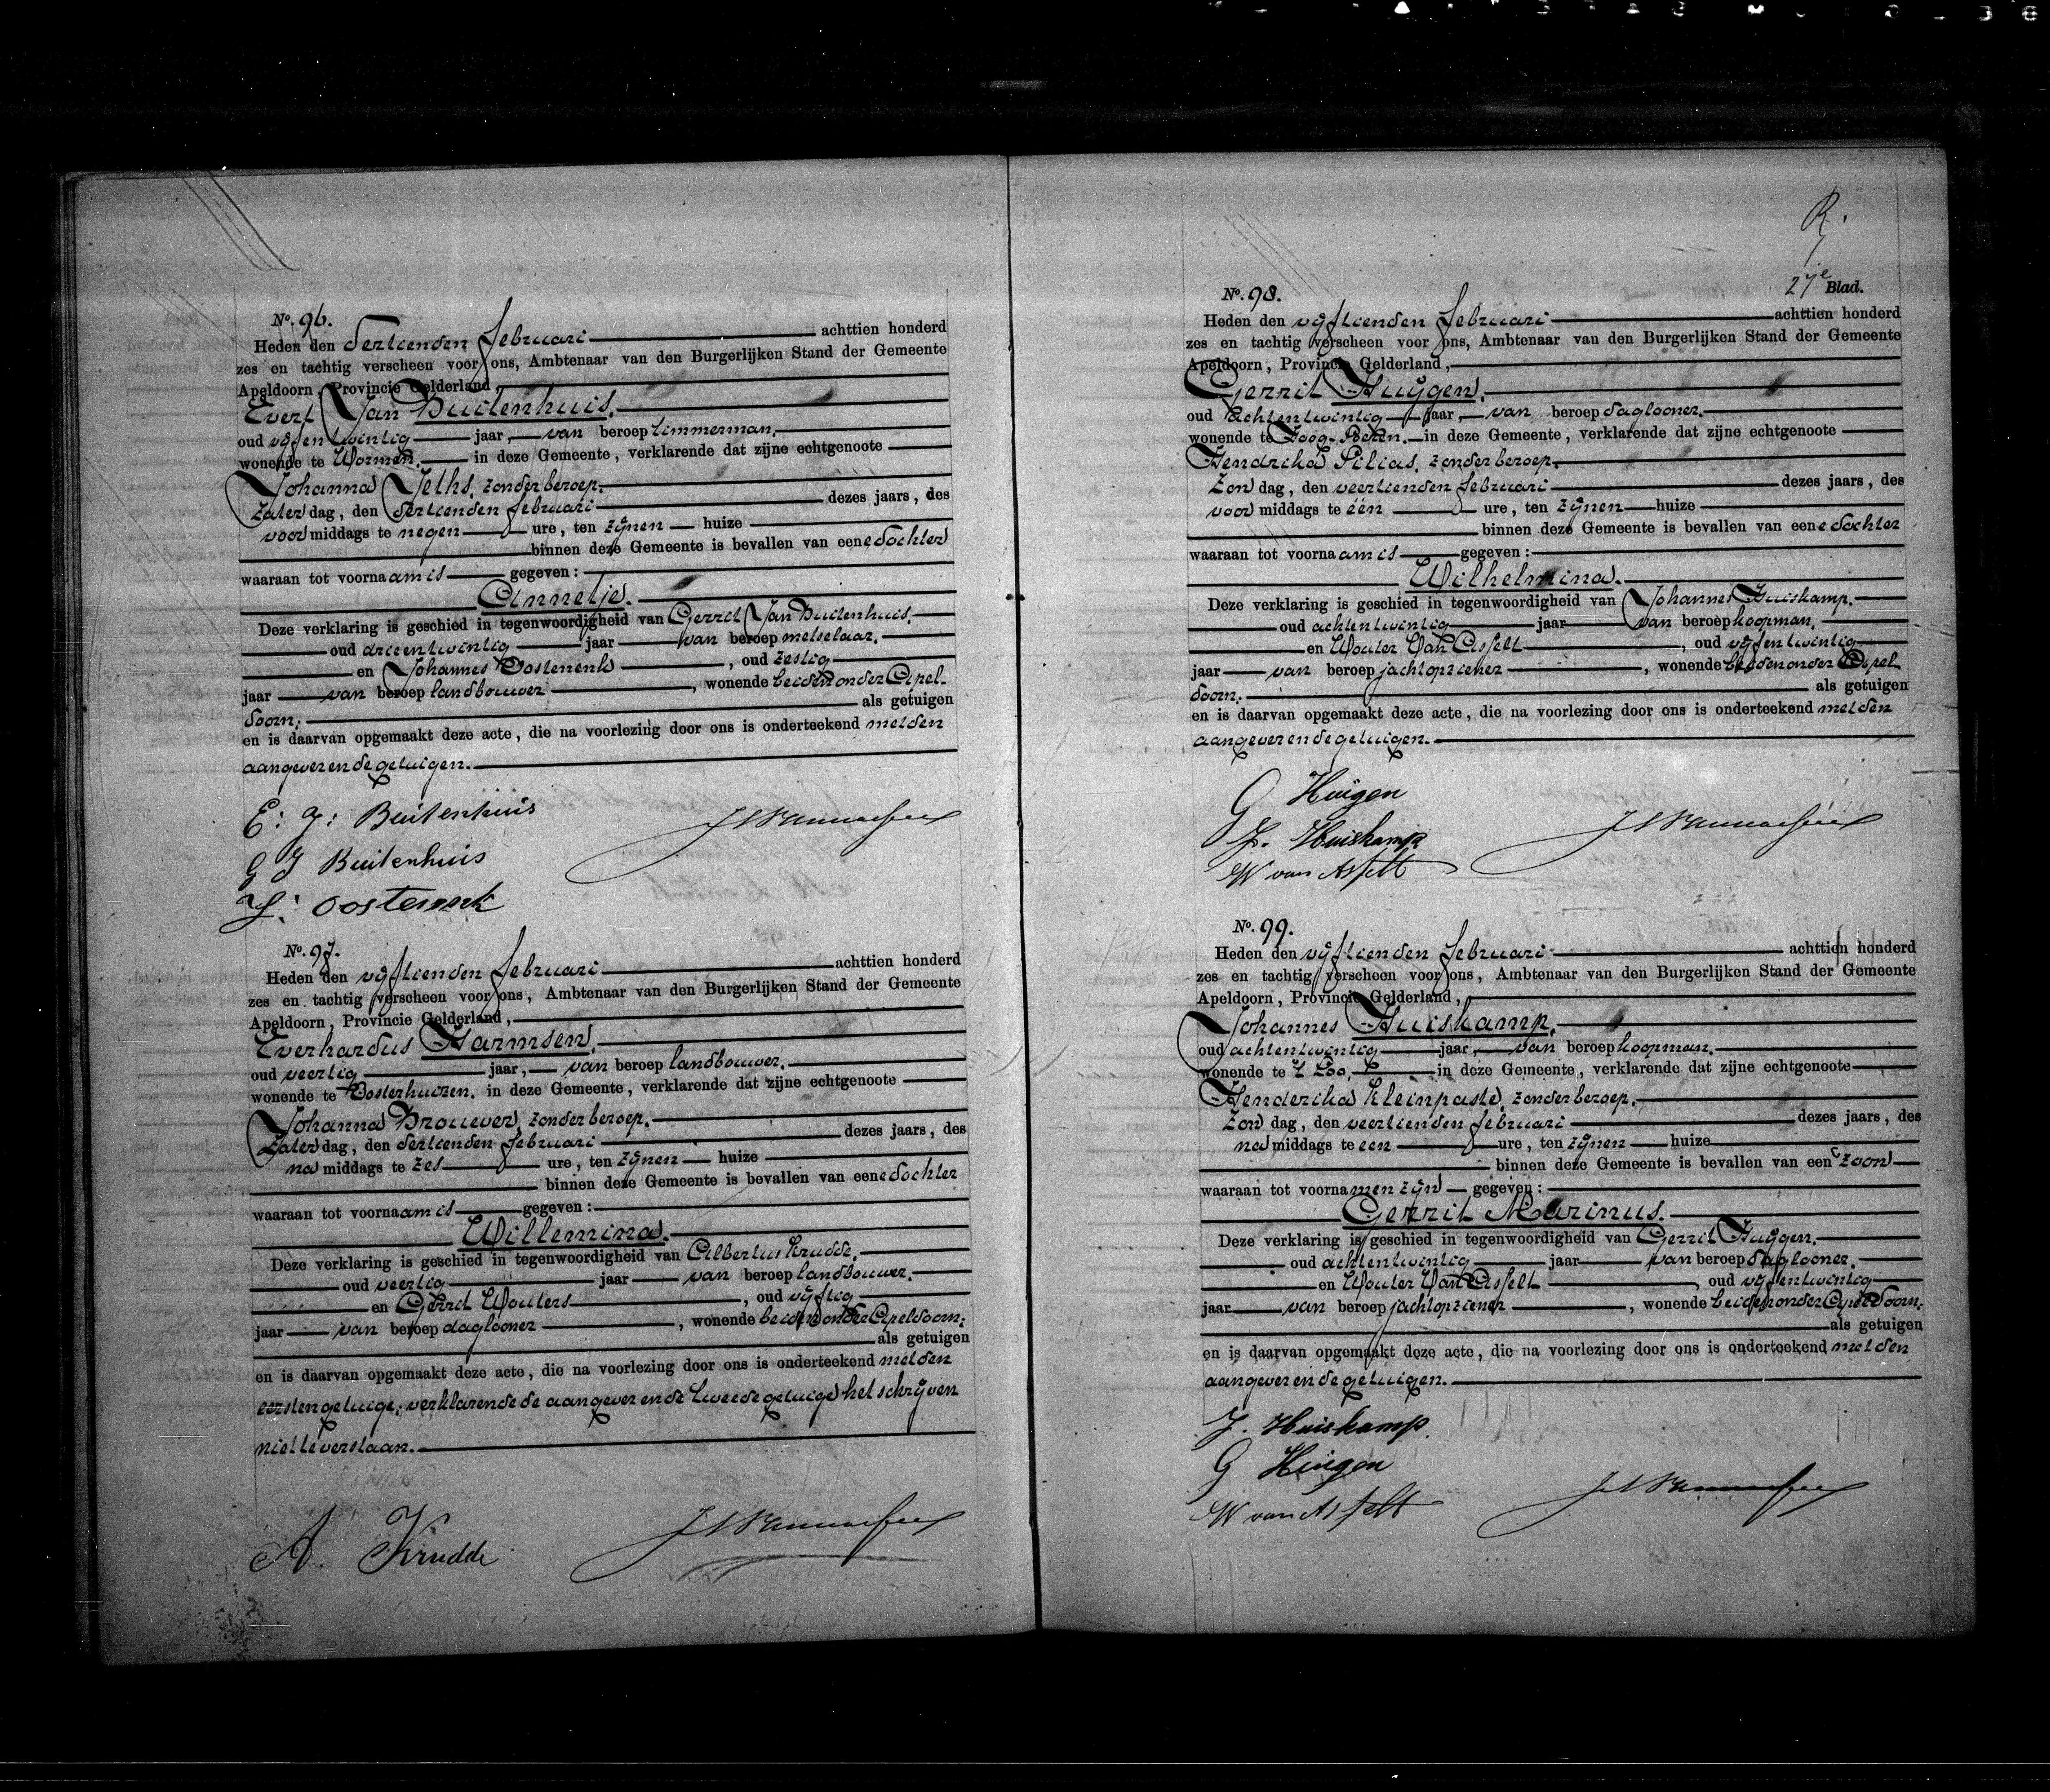 No. 96.
Heden den dertienden Februari achttien honderd
zes en tachtig verscheen voor ons, Ambtenaar van den Burgerlijken Stand der Gemeente
Apeldoorn, Provincie Gelderland,
Evert Jan Buitenhuis,
oud vijfentwintig jaar, van beroep timmerman,
wonende te Wormen, in deze Gemeente, verklarende dat zijne echtgenoote
Johanna Jeths, zonder beroep,
Zaterdag, den dertienden Februari dezes jaars, des
voormiddags te negen ure, ten zijnen huize
binnen deze Gemeente is bevallen van eene dochter
waaraan tot voornaam is gegeven:
Annetje.
Deze verklaring is geschied in tegenwoordigheid van Gerrit Jan Buitenhuis,
oud drieentwintig jaar van beroep metselaar,
en Johannes Oostenenk, oud zestig
jaar van beroep landbouwer, wonende beiden onder Apel-
doorn; als getuigen
en is daarvan opgemaakt deze acte, die na voorlezing door ons is onderteekend met den
aangever en de getuigen.
E: J: Buitenhuis
G J Buitenhuis
J: Oostenenk
No. 97.
Heden den vijftienden Februari achttien honderd
zes en tachtig verscheen voor ons, Ambtenaar van den Burgerlijken Stand der Gemeente
Apeldoorn, Provincie Gelderland,
Everhardus Harmsen,
oud veertig jaar, van beroep landbouwer,
wonende te Oosterhuizen, in deze Gemeente, verklarende dat zijne echtgenoote
Johanna Brouwer, zonder beroep,
Zaterdag, den dertienden Februari dezes jaars, des
namiddags te zes ure, ten zijnen huize
binnen deze Gemeente is bevallen van eene dochter
waaraan tot voornaam is gegeven:
Willemina.
Deze verklaring is geschied in tegenwoordigheid van Albertus Krudde,
oud veertig jaar van beroep landbouwer,
en Gerrit Wouters, oud vijftig
jaar van beroep daglooner, wonende beiden onder Apeldoorn;
als getuigen
en is daarvan opgemaakt deze acte, die na voorlezing door ons is onderteekend met den
eersten getuige; verklarende de aangever en de tweede getuige het schrijven
niet te verstaan.
A. Krudde
R.
27e Blad.
No. 98.
Heden den vijftienden Februari achttien honderd
zes en tachtig verscheen voor ons, Ambtenaar van den Burgerlijken Stand der Gemeente
Apeldoorn, Provincie Gelderland,
Gerrit Huijgen,
oud achtentwintig jaar, van beroep daglooner,
wonende te Hoog-Soeren, in deze Gemeente, verklarende dat zijne echtgenoote
Hendrika Pilias, zonder beroep,
Zondag, den veertienden Februari dezes jaars, des
voormiddags te één ure, ten zijnen huize
binnen deze Gemeente is bevallen van eene dochter
waaraan tot voornaam is gegeven:
Wilhelmina.
Deze verklaring is geschied in tegenwoordigheid van Johannes Huiskamp,
oud achtentwintig jaar van beroep koopman,
en Wouter Van Asselt, oud vijfentwintig
jaar van beroep jachtopziener, wonende beiden onder Apel-
doorn; als getuigen
en is daarvan opgemaakt deze acte, die na voorlezing door ons is onderteekend met den
aangever en de getuigen.
G Huigen
J. Huiskamp
W van Asselt
No. 99.
Heden den vijftienden Februari achttien honderd
zes en tachtig verscheen voor ons, Ambtenaar van den Burgerlijken Stand der Gemeente
Apeldoorn, Provincie Gelderland,
Johannes Huiskamp,
oud achtentwintig jaar, van beroep koopman,
wonende te 't Loo, in deze Gemeente, verklarende dat zijne echtgenoote
Henderika Kleinpaste, zonder beroep,
Zondag, den veertienden Februari dezes jaars, des
namiddags te een ure, ten zijnen huize
binnen deze Gemeente is bevallen van een zoon
waaraan tot voornamen zijn gegeven:
Gerrit Marinus.
Deze verklaring is geschied in tegenwoordigheid van Gerrit Huijgen,
oud achtentwintig jaar van beroep daglooner,
en Wouter Van Asselt, oud vijfentwintig
jaar van beroep jachtopziener, wonende beiden onder Apeldoorn;
als getuigen
en is daarvan opgemaakt deze acte, die na voorlezing door ons is onderteekend met den
aangever en de getuigen.
J. Huiskamp
G Huigen
W van Asselt